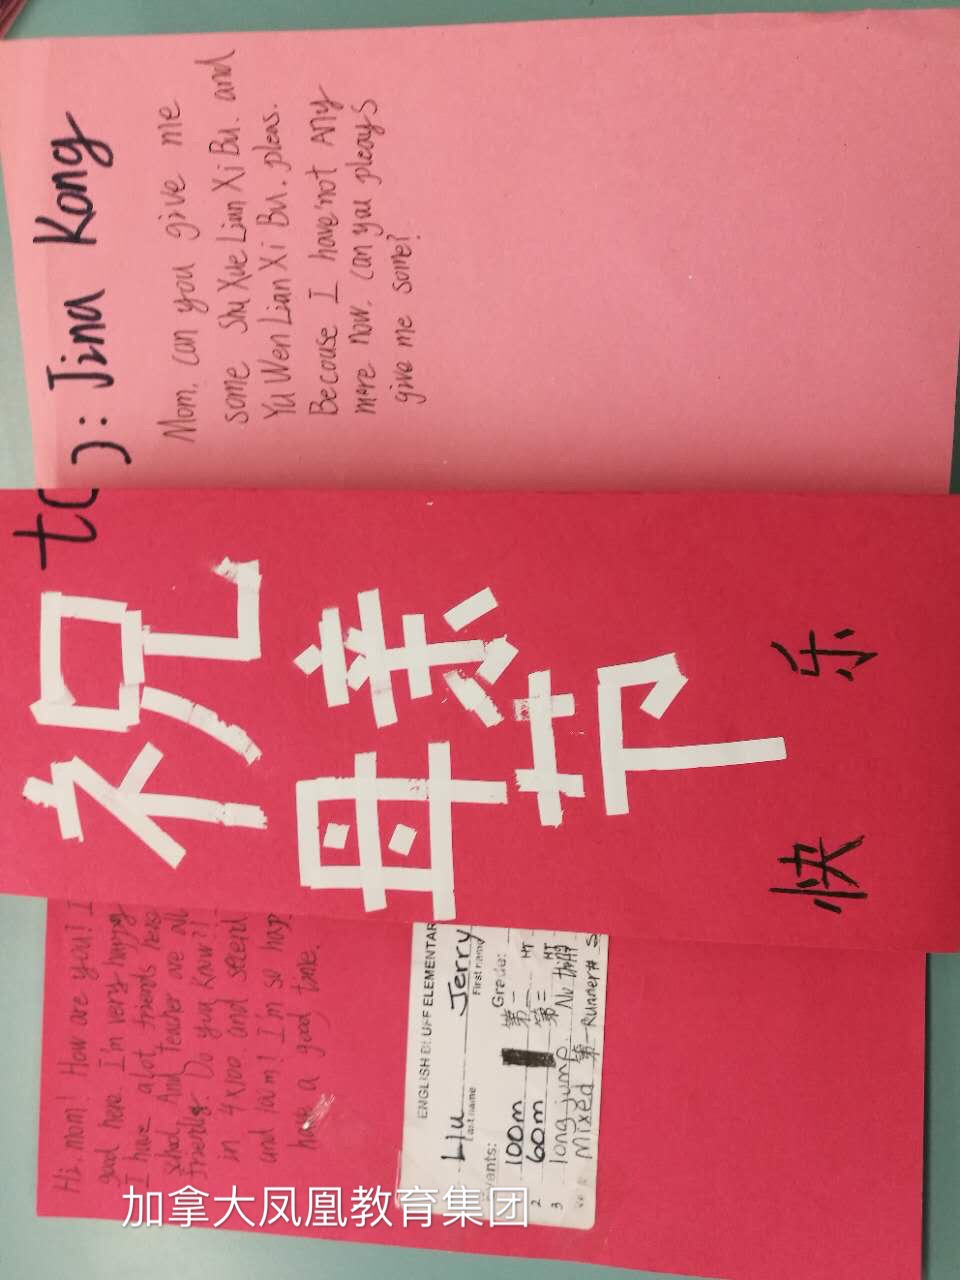 to): Jina Kong
Mom, can you give me
some Shu Xue Lian Xi Bu. and
Yu Wen Lian Xi Bu. pleas.
Becouse I have not Any
more now. can you pleays
give me some?
祝
母亲
节
快 乐
Hi, mom! How are you! I
good here. I'm very happy
I have alot friends
shool. And teacher are all
friently. Do you know?
in 4x100. and secend
and 100m! I'm so hap
have a good time.
ENGLISH BLUFF ELEMENTAR
LIU Jerry
Last name First name
Grade:
100m 第一 HT
2 60m 第二 HT
3 long jump No
mixed 第一 Runner# S
加拿大凤凰教育集团